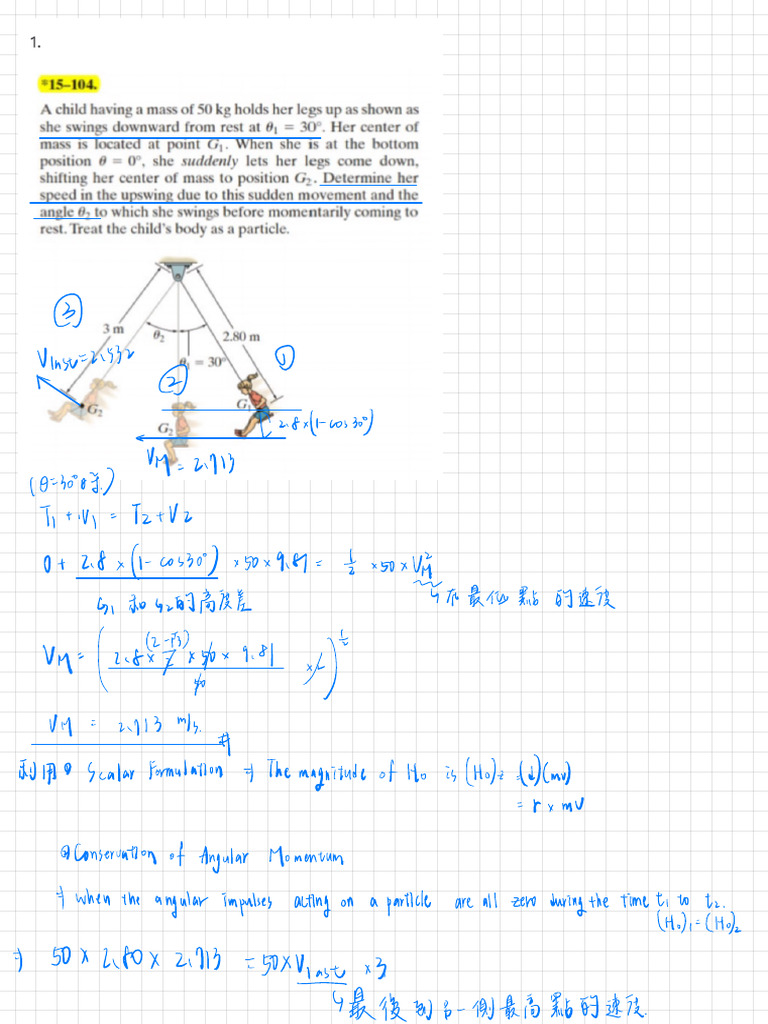 1.
*15–104.
A child having a mass of 50 kg holds her legs up as shown as
she swings downward from rest at θ₁ = 30°. Her center of
mass is located at point G₁. When she is at the bottom
position θ = 0°, she suddenly lets her legs come down,
shifting her center of mass to position G₂. Determine her
speed in the upswing due to this sudden movement and the
angle θ₂ to which she swings before momentarily coming to
rest. Treat the child's body as a particle.
③
3 m
θ₂
2.80 m
V last = 2.532
θ₁ = 30°
①
②
G₂
G₁
G₂
2.8×(1-cos30°)
V_M = 2.713
(θ=30°時)
T₁ + V₁ = T₂ + V₂
0 + 2.8 × (1- cos30°) × 50 × 9.81 = 1/2 × 50 × V_M²
G₁ 和 G₂的高度差
↳在最低點的速度
V_M = (2.8 × (2-√3)/2 × 50 × 9.81 / 50 × 2)^1/2
V_M = 2.713 m/s. #
利用① Scalar Formulation ⇒ The magnitude of Ho is (Ho)z = (d)(mv)
= r × mv
② Conservation of Angular Momentum
⇒ when the angular impulses acting on a particle are all zero during the time t₁ to t₂.
(Ho)₁ = (Ho)₂
⇒ 50 × 2.80 × 2.713 = 50 × V last × 3
↳最後到另一側最高點的速度